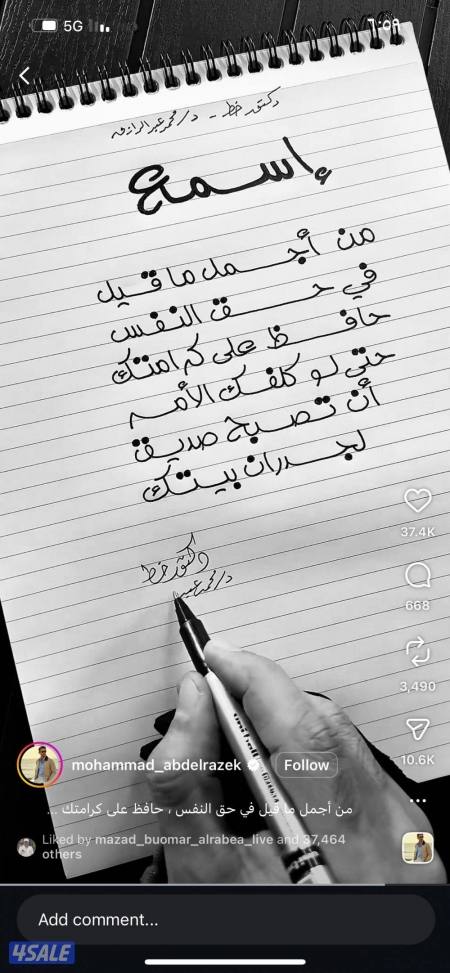 5G
٦:٥٩
دكتور خط - د/محمد عبدالرازق
إسمع
من أجمل ما قيل
في حق النفس
حافظ على كرامتك
حتى لو كلفك الأمر
أن تصبح صديق
لجدران بيتك
دكتور خط
د/محمد عبد
37.4K
668
3,490
10.6K
mohammad_abdelrazek
Follow
من أجمل ما قيل في حق النفس ، حافظ على كرامتك ...
Liked by mazad_buomar_alrabea_live and 37,464
others
Add comment...
4SALE